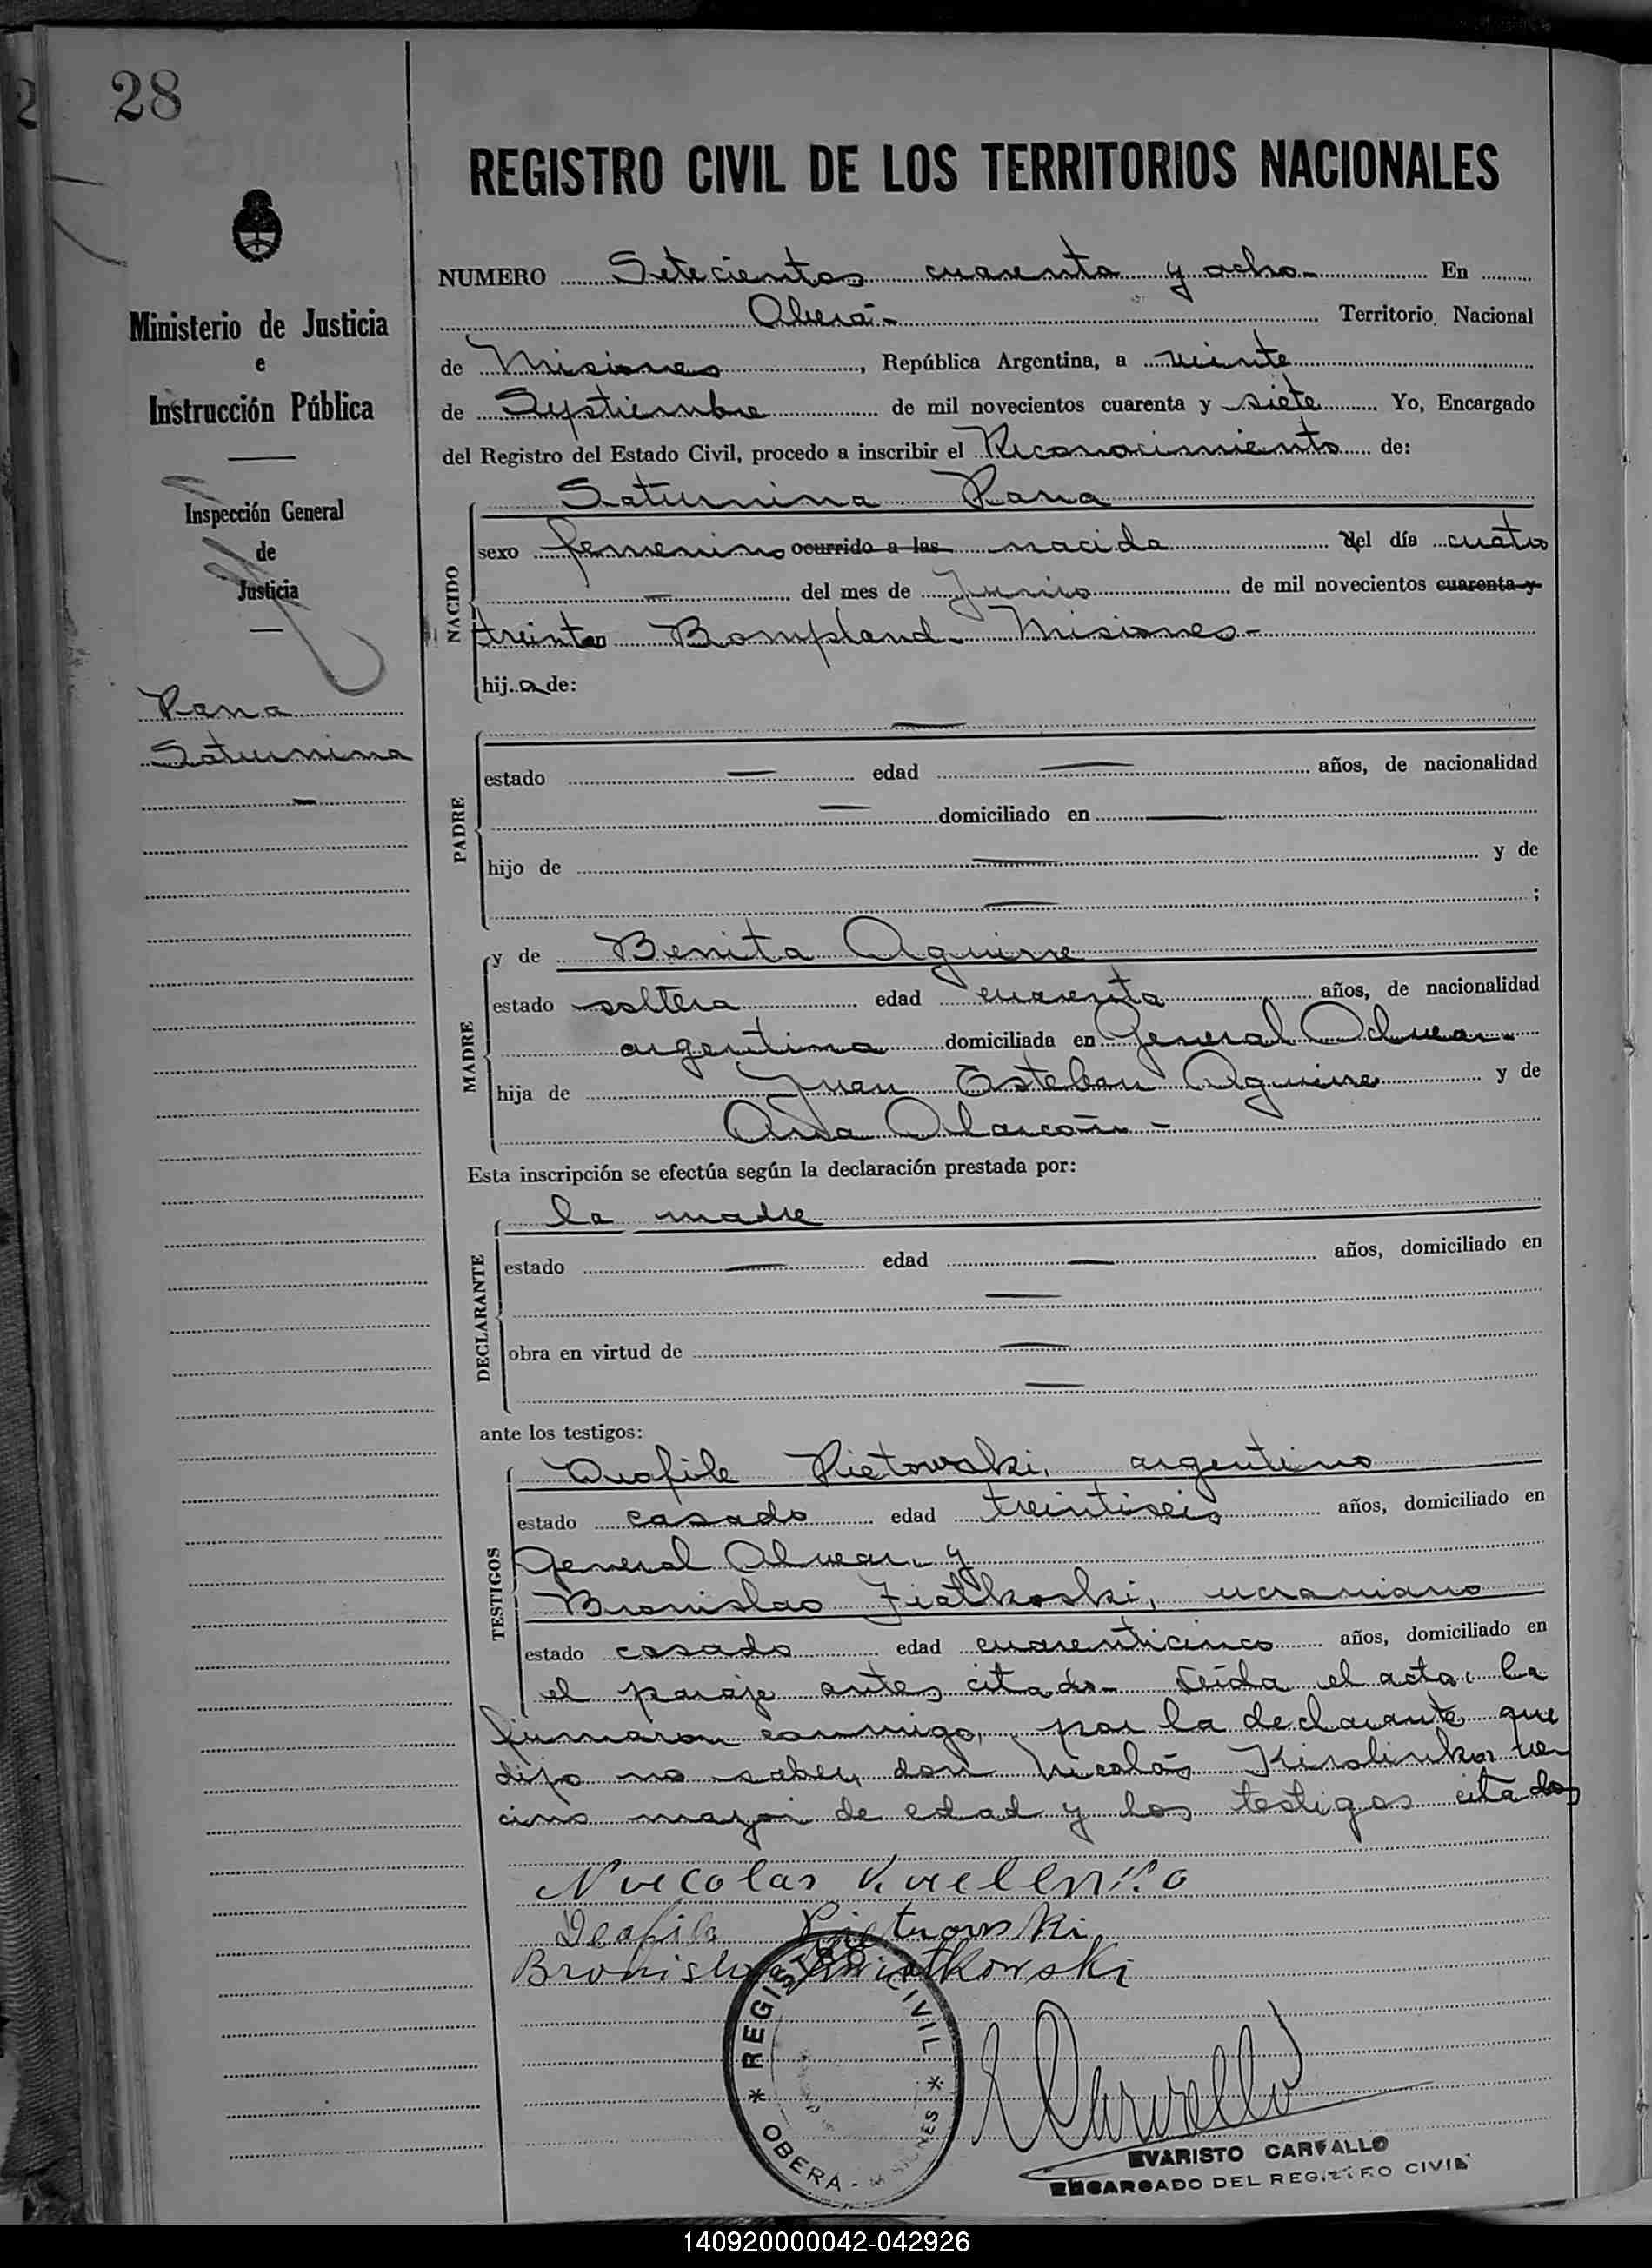 28
REGISTRO CIVIL DE LOS TERRITORIOS NACIONALES
Ministerio de Justicia
e
Instrucción Pública
Inspección General
de
Justicia
Pana
Saturnina
NUMERO Setecientos cuarenta y ocho- En
Oberá- Territorio Nacional
de Misiones, República Argentina, a veinte
de Septiembre de mil novecientos cuarenta y siete Yo, Encargado
del Registro del Estado Civil, procedo a inscribir el Reconocimiento de:
Saturnina Pana
NACIDO
sexo femenino ocurrido a las nacida del día cuatro
— del mes de Junio de mil novecientos cuarenta y
treinta Bompland- Misiones-
hija de:
PADRE
estado — edad — años, de nacionalidad
— domiciliado en —
hijo de — y de
— ;
MADRE
y de Benita Aguirre
estado soltera edad cuarenta años, de nacionalidad
argentina domiciliada en General Alvear-
hija de Juan Esteban Aguirre y de
Ana Alarcón-
Esta inscripción se efectúa según la declaración prestada por:
DECLARANTE
la madre
estado — edad — años, domiciliado en
—
obra en virtud de —
—
ante los testigos:
TESTIGOS
Pietowski, argentino
estado casado edad treintiseis años, domiciliado en
General Alvear, y
Bronislao Fiatkoski, ucraniano
estado casado edad cuarenticinco años, domiciliado en
el paraje antes citado- Leída el acta, la
firmaron conmigo, por la declarante que
dijo no saber, don Nicolás ve-
cino mayor de edad y los testigos citados
Nicolas
Pietrowski
REGISTRO CIVIL
OBERA - MISIONES
Carvallo
EVARISTO CARVALLO
ENCARGADO DEL REGISTRO CIVIL
140920000042-042926